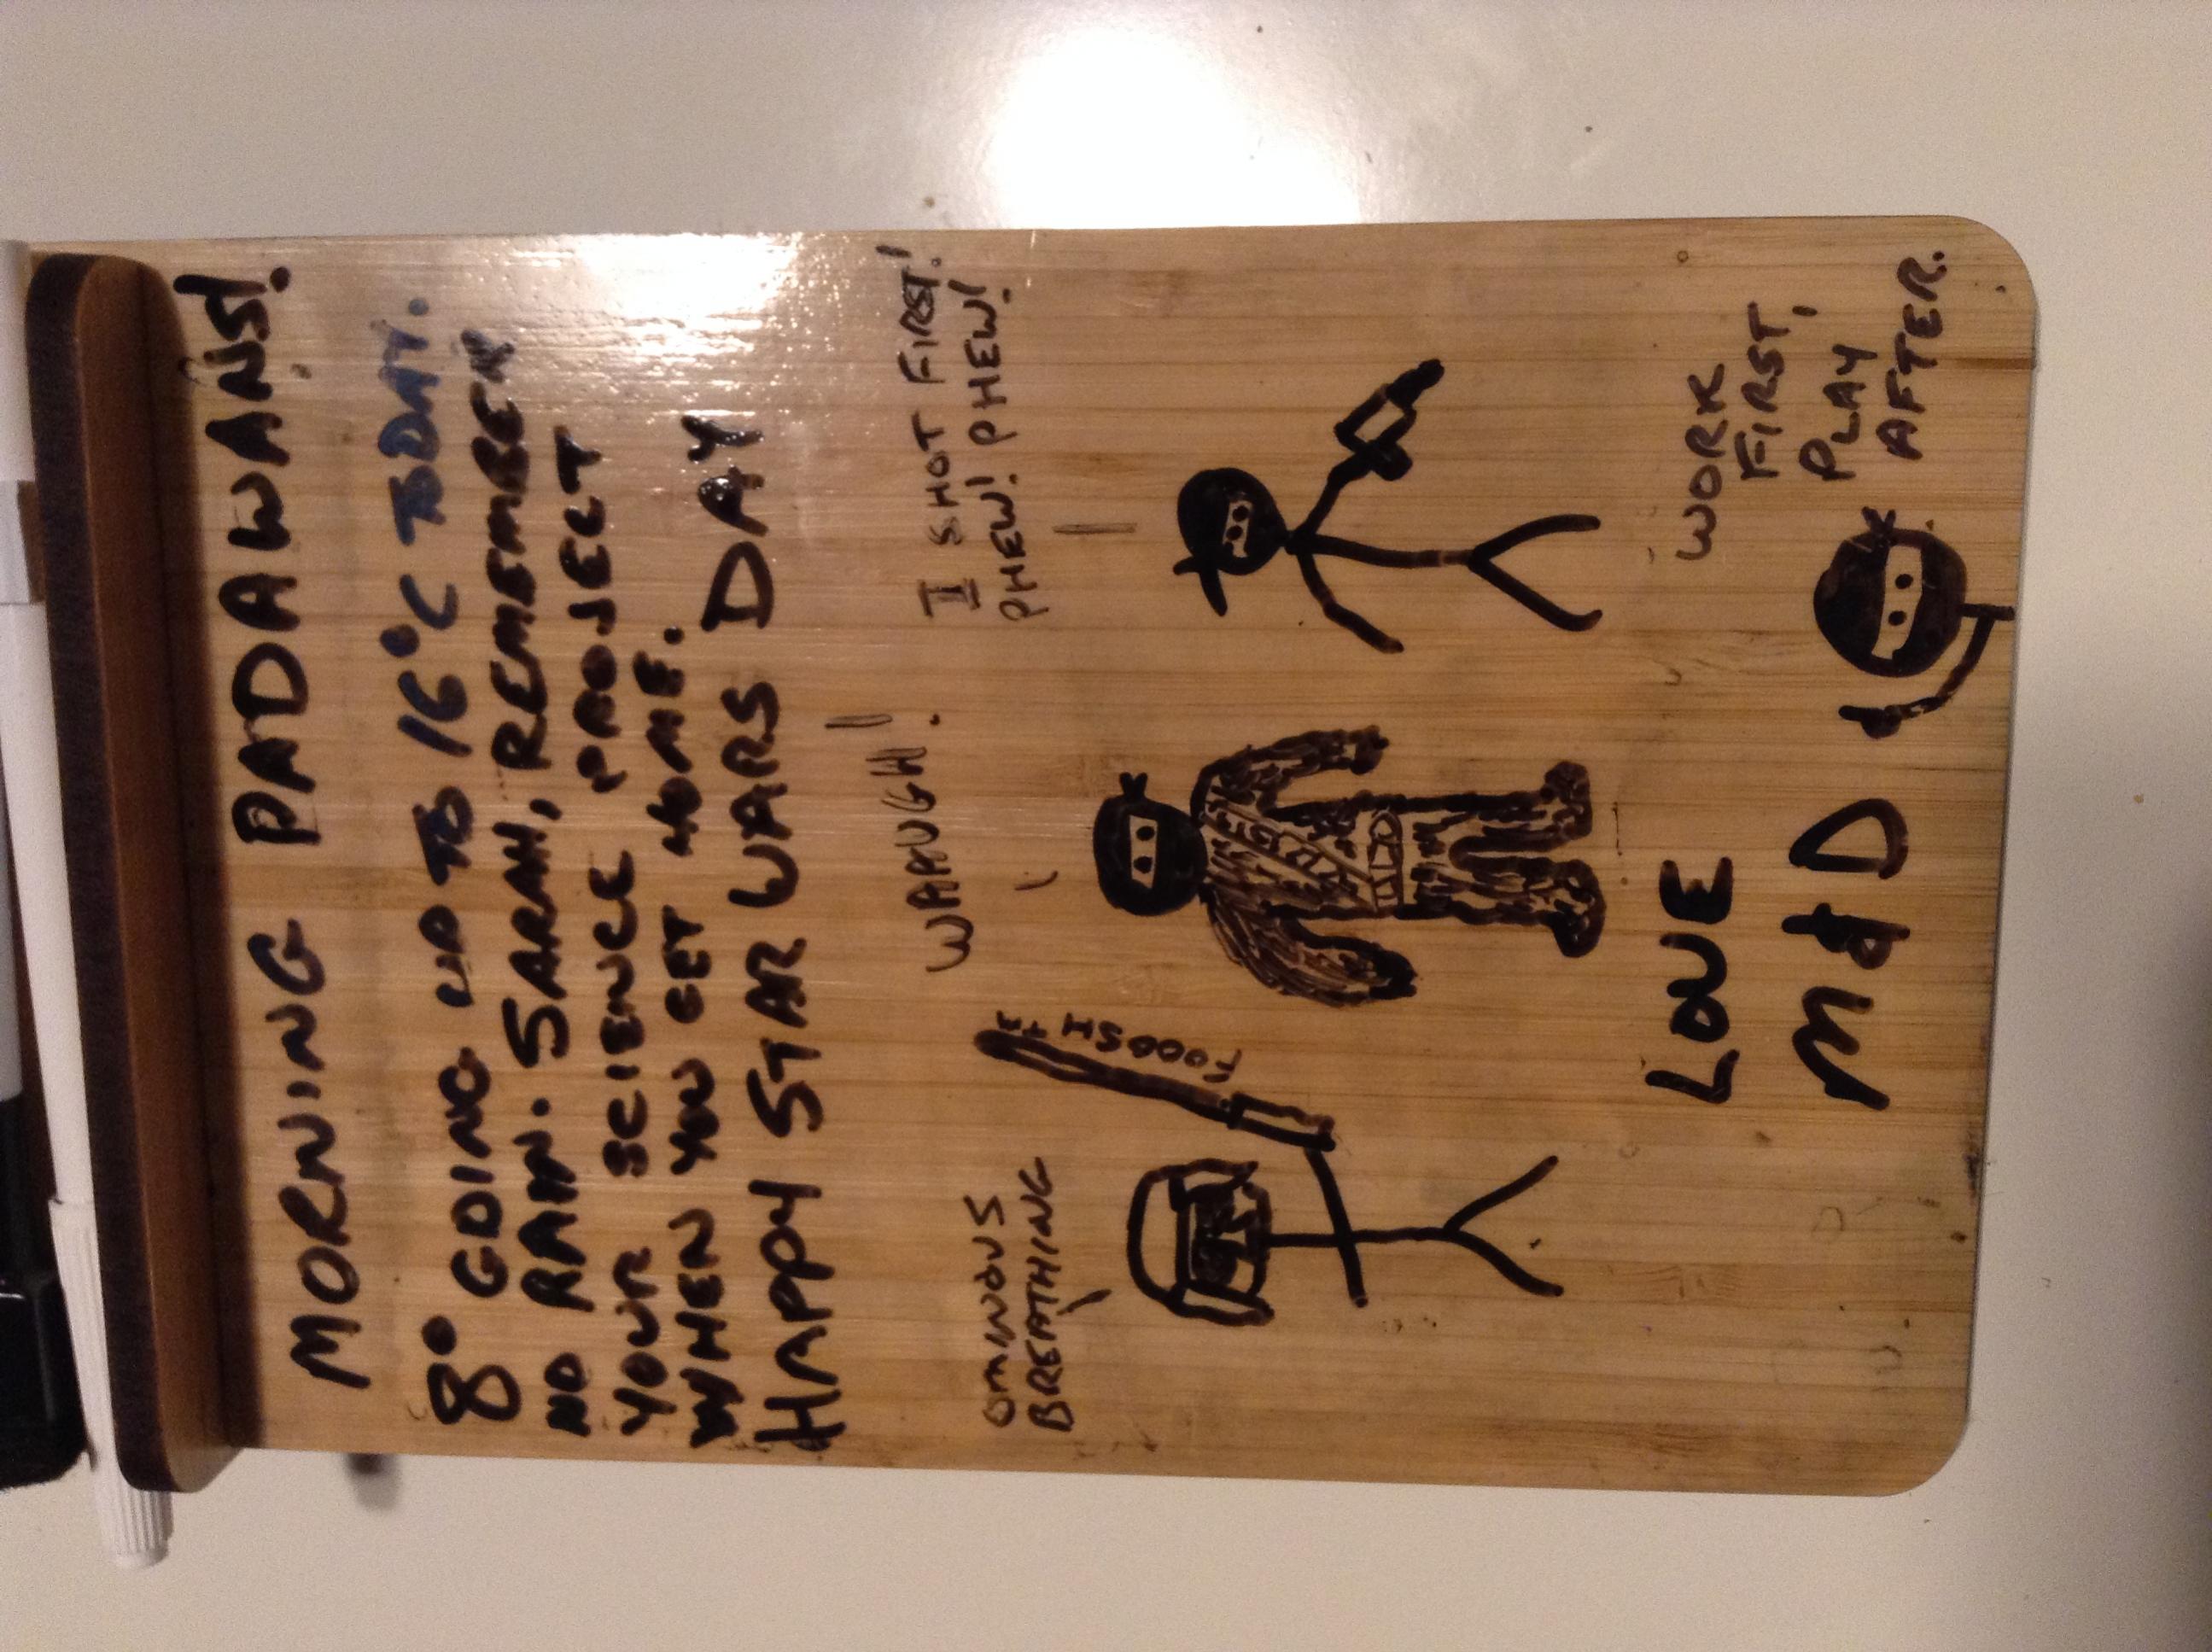 MORNING PADAWANS!
8° GOING UP TO 16°C TODAY.
NO RAIN. SARAH, REMEMBER
YOUR SCIENCE PROJECT
WHEN YOU GET HOME.
HAPPY STAR WARS DAY
OMINOUS
BREATHING
FOOOSH
WAAUGH!
I SHOT FIRST!
PHEW! PHEW!
LOVE
M & D
WORK
FIRST,
PLAY
AFTER.